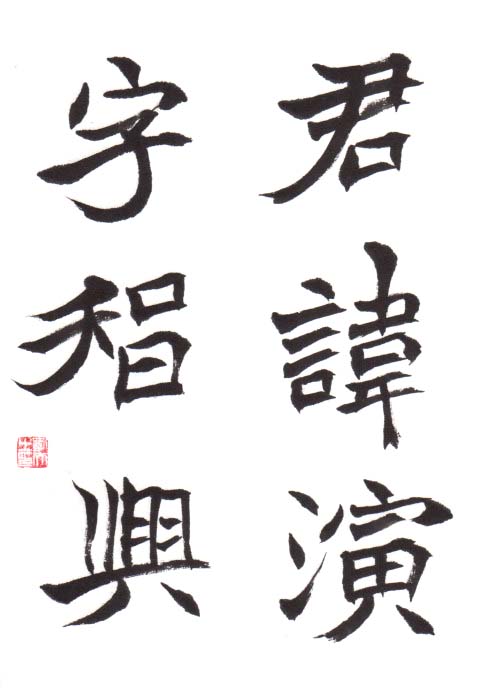 君諱演
字智興